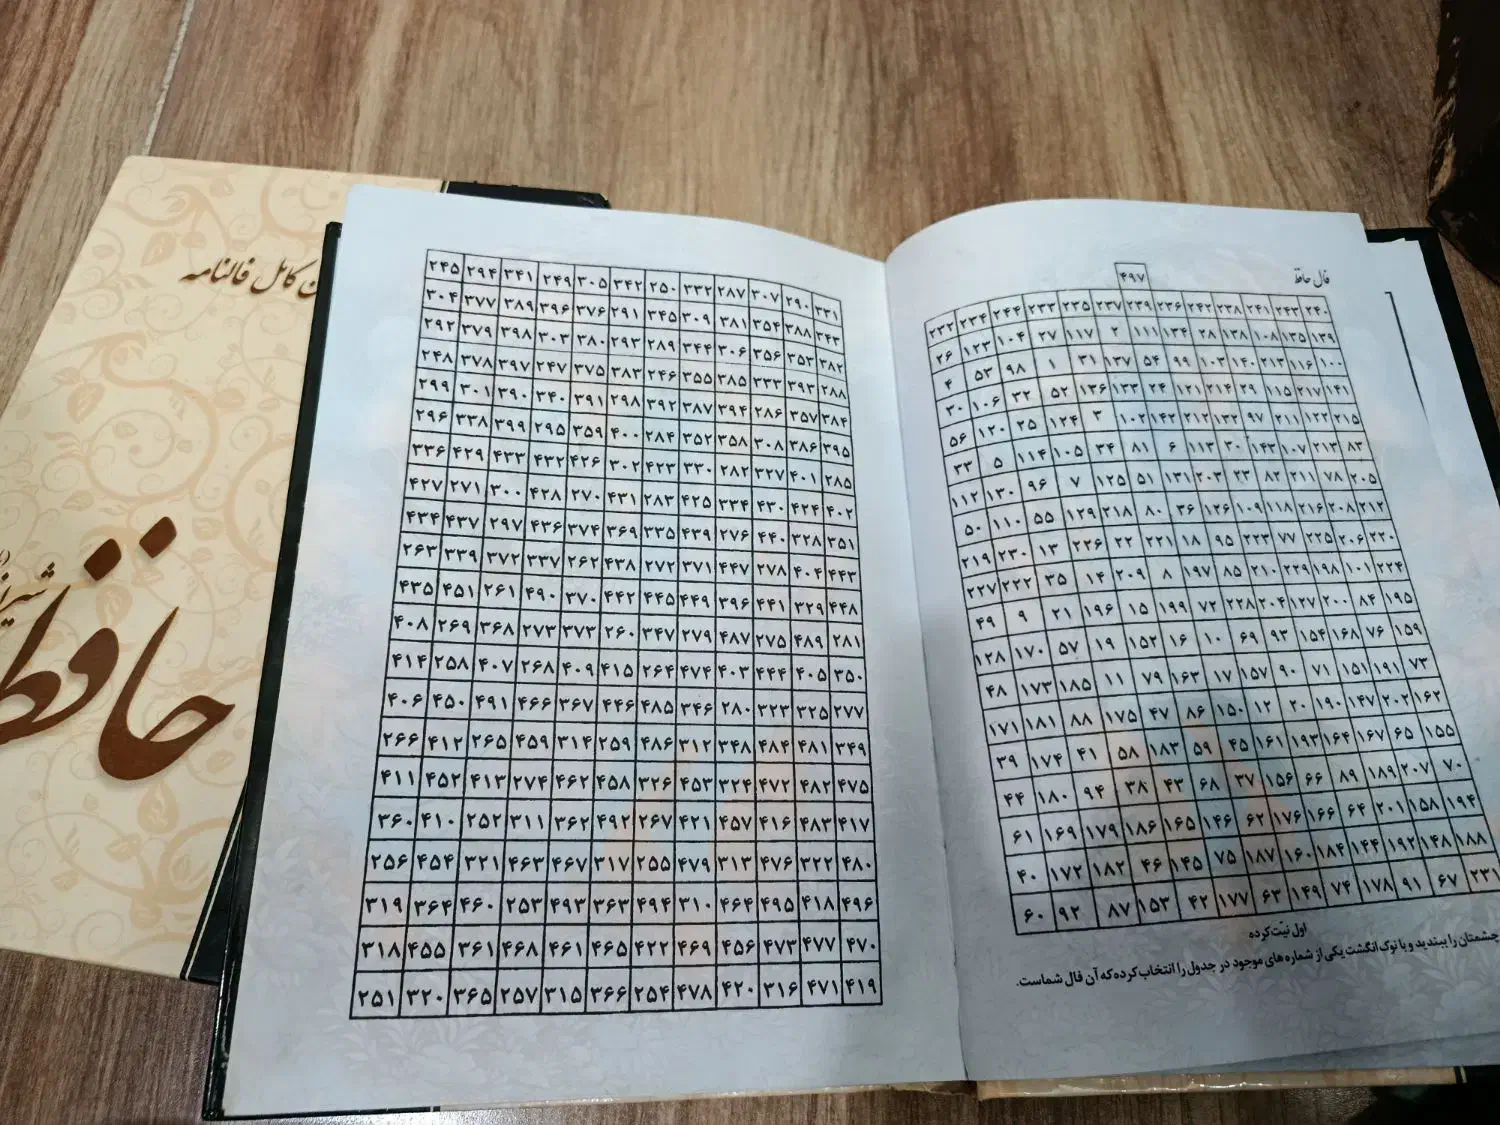 فال حافظ
۴۹۷
۲۴۰ ۲۴۳ ۲۴۱ ۲۳۸ ۲۴۲ ۲۳۶ ۲۳۹ ۲۳۷ ۲۳۵ ۲۳۳ ۲۴۴ ۲۳۴ ۲۳۲
۱۳۹ ۱۳۵ ۱۰۸ ۱۳۸ ۲۸ ۱۳۴ ۱۱۱ ۲ ۱۱۷ ۲۷ ۱۰۴ ۱۲۳ ۲۶
۱۰۰ ۱۱۶ ۲۱۳ ۱۴۰ ۱۰۳ ۹۹ ۵۴ ۱۳۷ ۳۱ ۱ ۹۸ ۵۳ ۴
۱۴۱ ۲۱۷ ۱۱۵ ۲۹ ۲۱۴ ۱۲۱ ۲۴ ۱۳۳ ۱۳۶ ۵۲ ۳۲ ۱۰۶ ۳۰
۲۱۵ ۱۲۲ ۲۱۱ ۹۷ ۱۳۲ ۲۱۲ ۱۴۲ ۱۰۲ ۳ ۱۲۴ ۲۵ ۱۲۰ ۵۶
۸۳ ۲۱۳ ۱۰۷ ۱۴۳ ۳۰ ۱۱۳ ۶ ۸۱ ۳۴ ۱۰۵ ۱۱۴ ۵ ۳۳
۲۰۵ ۷۸ ۲۱۱ ۸۲ ۲۳ ۲۰۳ ۱۳۱ ۵۱ ۱۲۵ ۷ ۹۶ ۱۳۰ ۱۱۲
۲۱۲ ۲۰۸ ۲۱۶ ۱۱۸ ۱۰۹ ۱۲۶ ۳۶ ۸۰ ۲۱۸ ۱۲۹ ۵۵ ۱۱۰ ۵۰
۲۲۰ ۲۰۶ ۲۲۵ ۷۷ ۲۲۳ ۹۵ ۱۸ ۲۲۱ ۲۲ ۲۲۶ ۱۳ ۲۳۰ ۲۱۹
۲۲۴ ۱۰۱ ۱۹۸ ۲۲۹ ۲۱۰ ۸۵ ۱۹۷ ۸ ۲۰۹ ۱۴ ۳۵ ۲۲۲ ۲۲۷
۱۹۵ ۸۴ ۲۰۰ ۱۲۷ ۲۰۴ ۲۲۸ ۷۲ ۱۹۹ ۱۵ ۱۹۶ ۲۱ ۹ ۴۹
۱۵۹ ۷۶ ۱۶۸ ۱۵۴ ۹۳ ۶۹ ۱۰ ۱۶ ۱۵۲ ۱۹ ۵۷ ۱۷۰ ۱۲۸
۷۳ ۱۹۱ ۱۵۱ ۷۱ ۹۰ ۱۵۷ ۱۷ ۱۶۳ ۷۹ ۱۱ ۱۸۵ ۱۷۳ ۴۸
۱۶۲ ۲۰۲ ۱۴۷ ۱۹۰ ۲۰ ۱۲ ۱۵۰ ۸۶ ۴۷ ۱۷۵ ۸۸ ۱۸۱ ۱۷۱
۱۵۵ ۶۵ ۱۶۷ ۱۶۴ ۱۹۳ ۱۶۱ ۴۵ ۵۹ ۱۸۳ ۵۸ ۴۱ ۱۷۴ ۳۹
۷۰ ۲۰۷ ۱۸۹ ۸۹ ۶۶ ۱۵۶ ۳۷ ۶۸ ۴۳ ۳۸ ۹۴ ۱۸۰ ۴۴
۱۹۴ ۱۵۸ ۲۰۱ ۶۴ ۱۶۶ ۱۷۶ ۶۲ ۱۴۶ ۱۶۵ ۱۸۶ ۱۷۹ ۱۶۹ ۶۱
۱۸۸ ۱۴۸ ۱۹۲ ۱۴۴ ۱۸۴ ۱۶۰ ۱۸۷ ۷۵ ۱۴۵ ۴۶ ۱۸۲ ۱۷۲ ۴۰
۲۳۱ ۶۷ ۹۱ ۱۷۸ ۷۴ ۱۴۹ ۶۳ ۱۷۷ ۴۲ ۱۵۳ ۸۷ ۹۲ ۶۰
اول نیت کرده
چشمتان را ببندید و با نوک انگشت یکی از شماره های موجود در جدول را انتخاب کرده که آن فال شماست.
۳۳۱ ۲۹۰ ۳۰۷ ۲۸۷ ۳۳۲ ۲۵۰ ۳۴۲ ۳۰۵ ۲۴۹ ۳۴۱ ۲۹۴ ۲۴۵
۳۴۳ ۳۸۸ ۳۵۴ ۳۸۱ ۳۰۹ ۳۴۵ ۲۹۱ ۳۷۶ ۳۹۶ ۳۸۹ ۳۷۷ ۳۰۴
۳۸۲ ۳۵۳ ۳۵۶ ۳۰۶ ۳۴۴ ۲۸۹ ۲۹۳ ۳۸۰ ۳۰۳ ۳۹۸ ۳۷۹ ۲۹۲
۲۸۸ ۳۹۳ ۳۳۳ ۳۸۵ ۳۵۵ ۲۴۶ ۳۸۳ ۳۷۵ ۲۴۷ ۳۹۷ ۳۷۸ ۲۴۸
۳۸۴ ۳۵۷ ۲۸۶ ۳۹۴ ۳۸۷ ۳۹۲ ۲۹۸ ۳۹۱ ۳۴۰ ۳۹۰ ۳۰۱ ۲۹۹
۳۹۵ ۳۸۶ ۳۰۸ ۳۵۸ ۳۵۲ ۲۸۴ ۴۰۰ ۳۵۹ ۲۹۵ ۳۹۹ ۳۳۸ ۲۹۶
۲۸۵ ۴۰۱ ۳۲۷ ۲۸۲ ۳۳۰ ۴۲۳ ۳۰۲ ۴۲۶ ۴۳۲ ۴۳۳ ۴۲۹ ۳۳۶
۴۰۲ ۴۲۴ ۴۳۰ ۳۳۴ ۴۲۵ ۲۸۳ ۴۳۱ ۲۷۰ ۴۲۸ ۳۰۰ ۲۷۱ ۴۲۷
۳۵۱ ۳۲۸ ۴۴۰ ۲۷۶ ۴۳۹ ۳۳۵ ۳۶۹ ۳۷۴ ۴۳۶ ۲۹۷ ۴۳۷ ۴۳۴
۴۴۳ ۴۰۴ ۲۷۸ ۴۴۷ ۳۷۱ ۲۷۲ ۴۳۸ ۲۶۲ ۳۳۷ ۳۷۲ ۳۳۹ ۲۶۳
۴۴۸ ۳۲۹ ۴۴۱ ۳۹۶ ۴۴۹ ۴۴۵ ۴۴۲ ۳۷۰ ۴۹۰ ۲۶۱ ۴۵۱ ۴۳۵
۲۸۱ ۴۸۹ ۲۷۵ ۴۸۷ ۲۷۹ ۳۴۷ ۲۶۰ ۳۷۳ ۲۷۳ ۳۶۸ ۲۶۹ ۴۰۸
۳۵۰ ۴۰۵ ۴۴۴ ۴۰۳ ۴۷۴ ۲۶۴ ۴۱۵ ۴۰۹ ۲۶۸ ۴۰۷ ۲۵۸ ۴۱۴
۲۷۷ ۳۲۵ ۳۲۳ ۲۸۰ ۳۴۶ ۴۸۵ ۴۴۶ ۳۶۷ ۴۶۶ ۴۹۱ ۴۵۰ ۴۰۶
۳۴۹ ۴۸۱ ۴۸۴ ۳۴۸ ۳۱۲ ۴۸۶ ۲۵۹ ۳۱۴ ۴۵۹ ۲۶۵ ۴۱۲ ۲۶۶
۴۷۵ ۴۸۲ ۴۷۲ ۳۲۴ ۴۵۳ ۳۲۶ ۴۵۸ ۴۶۲ ۲۷۴ ۴۱۳ ۴۵۲ ۴۱۱
۴۱۷ ۴۸۳ ۴۱۶ ۴۵۷ ۴۲۱ ۲۶۷ ۴۹۲ ۳۶۲ ۳۱۱ ۲۵۲ ۴۱۰ ۳۶۰
۴۸۰ ۳۲۲ ۴۷۶ ۳۱۳ ۴۷۹ ۲۵۵ ۳۱۷ ۴۶۷ ۴۶۳ ۳۲۱ ۴۵۴ ۲۵۶
۴۹۶ ۴۱۸ ۴۹۵ ۴۶۴ ۳۱۰ ۴۹۴ ۳۶۳ ۴۹۳ ۲۵۳ ۴۶۰ ۳۶۴ ۳۱۹
۴۷۰ ۴۷۷ ۴۷۳ ۴۵۶ ۴۶۹ ۴۲۲ ۴۶۵ ۴۶۱ ۴۶۸ ۳۶۱ ۴۵۵ ۳۱۸
۴۱۹ ۴۷۱ ۳۱۶ ۴۲۰ ۴۷۸ ۲۵۴ ۳۶۶ ۳۱۵ ۲۵۷ ۳۶۵ ۳۲۰ ۲۵۱
کامل فالنامه
حافظ